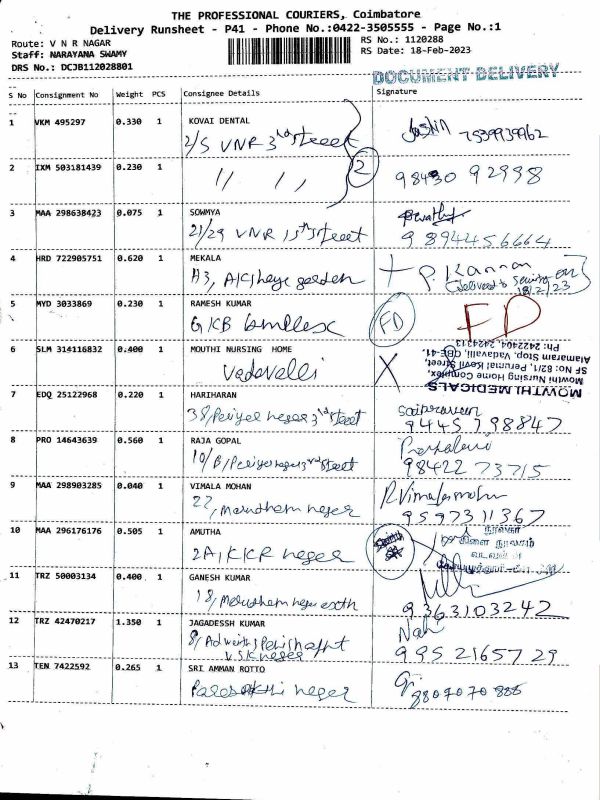 THE PROFESSIONAL COURIERS, Coimbatore
Delivery Runsheet - P41 - Phone No.:0422-3505555 - Page No.:1
Route: V N R NAGAR
Staff: NARAYANA SWAMY
DRS No.: DCJB112028801
RS No.: 1120288
RS Date: 18-Feb-2023
DOCUMENT DELIVERY
S No Consignment No Weight PCS Consignee Details Signature
1 VKM 495297 0.330 1 KOVAI DENTAL
2/5 VNR 3rd street 7539939962
2 IXM 503181439 0.230 1
11 11 2 98430 92998
3 MAA 298638423 0.075 1 SOWMYA
21/29 VNR 15th street 9894456664
4 HRD 722905751 0.620 1 MEKALA P. Kannan
A3, garden 18/2/23
5 MYD 3033869 0.230 1 RAMESH KUMAR
GKB FD FD
6 SLM 314116832 0.400 1 MOUTHI NURSING HOME
Vadavelli X
MOWTHI MEDICALS
Mowthi Nursing Home Complex,
SF No: 82/1, Perumal Kovil Street,
Alamaram Stop, Vadavalli, CBE-41.
Ph: 2422404, 2424313
7 EDQ 25122968 0.220 1 HARIHARAN
38/Periyar neger 3rd street 9445798847
8 PRO 14643639 0.560 1 RAJA GOPAL
10/B/Periyar neger 3rd street 98422 73715
9 MAA 298903285 0.040 1 VIMALA MOHAN R Vimala mohan
22, Marudham neger 9597311367
10 MAA 296176176 0.505 1 AMUTHA
2A, KKR neger
11 TRZ 50003134 0.400 1 GANESH KUMAR
18, Marudham neger 9363103242
12 TRZ 42470217 1.350 1 JAGADESSH KUMAR
8, V.S.K neger 99521657 29
13 TEN 7422592 0.265 1 SRI AMMAN ROTTO
neger 9807070885